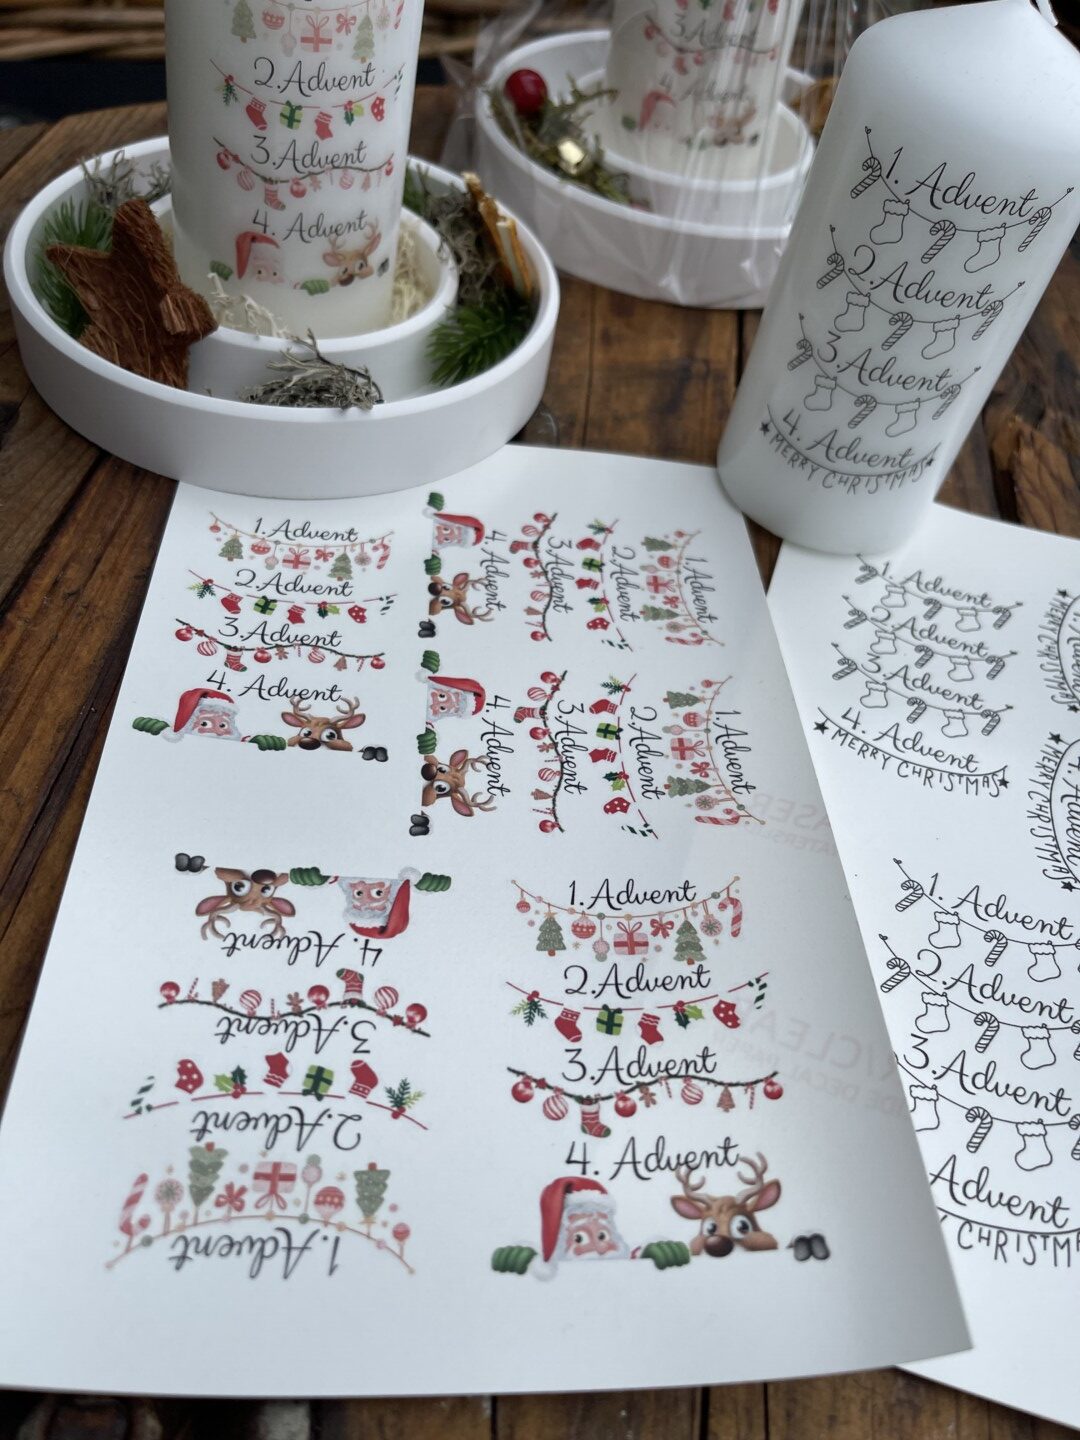 2.Advent
3.Advent
4. Advent
3.Advent
4. Advent
1. Advent
2.Advent
3.Advent
4. Advent
MERRY CHRISTMAS
1.Advent
2.Advent
3.Advent
4. Advent
1.Advent
2.Advent
3.Advent
4. Advent
1.Advent
2.Advent
3.Advent
4. Advent
1.Advent
2.Advent
3.Advent
4. Advent
1.Advent
2.Advent
3.Advent
4. Advent
1. Advent
2.Advent
3.Advent
4. Advent
MERRY CHRISTMAS
MERRY CHRISTMAS
4. Advent
MERRY CHRISTMAS
1. Advent
2.Advent
3.Advent
Advent